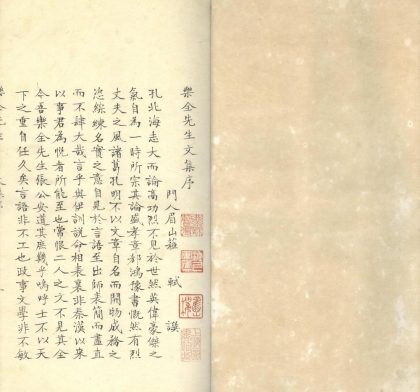 樂全先生文集序
門人眉山蘇　軾　譔
孔北海志大而論高功烈不見於世然英偉豪傑之
氣自為一時所宗其論盛孝章郗鴻豫書慨然有烈
丈夫之風諸葛孔明不以文章自名而開物成務之
姿綜練名實之意自見於言語至出師表簡而盡直
而不肆大哉言乎與伊訓說命相表裏非秦漢以來
以事君為悅者所能至也常恨二人之文不見其全
今吾樂全先生張公安道其庶幾乎嗚呼士不以天
下之重自任久矣言語非不工也政事文學非不敏